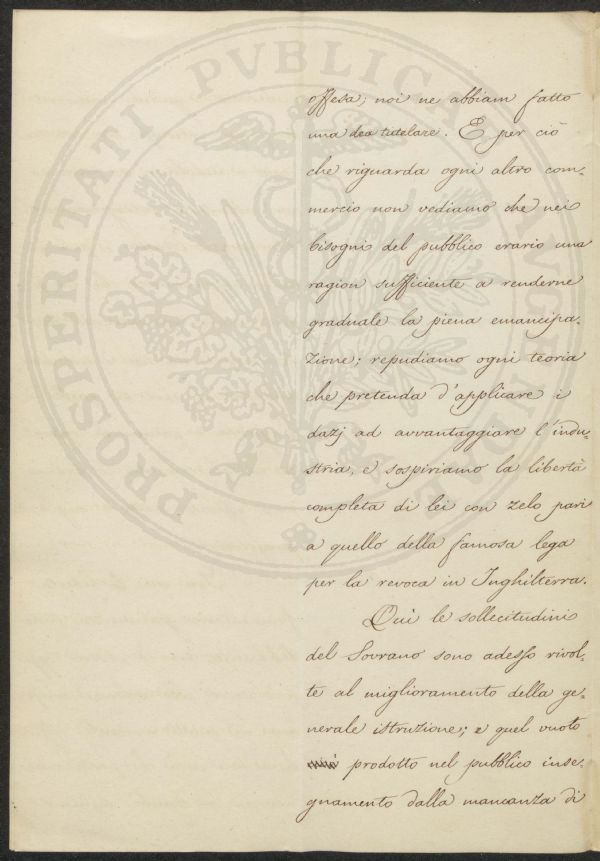 offesa; noi ne abbiam fatto
una dea tutelare. E per ciò
che riguarda ogni altro com-
mercio non vediamo che nei
bisogni del pubblico erario una
ragion sufficiente a renderne
graduale la piena emancipa-
zione; repudiamo ogni teoria
che pretenda d'applicare i
dazj ad avvantaggiare l'indu-
stria, e sospiriamo la libertà
completa di lei con zelo pari
a quello della famosa lega
per la revoca in Inghilterra.
Qui le sollecitudini
del Sovrano sono adesso rivol-
te al miglioramento della ge-
nerale istruzione; e quel vuoto
prodotto nel pubblico inse-
gnamento dalla mancanza di
PROSPERITATI PVBLICAE